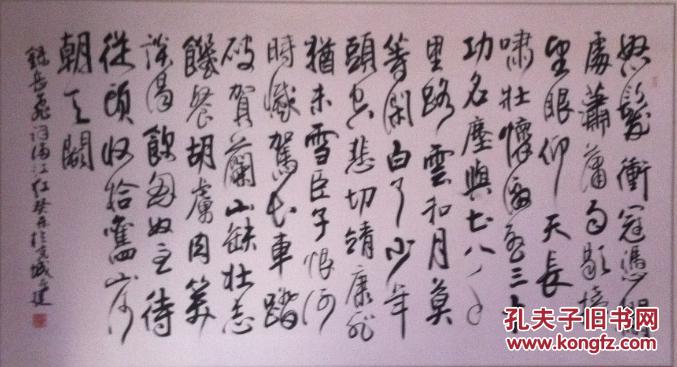 怒髮衝冠憑闌
處蕭蕭雨歇擡
望眼仰天長
嘯壯懷激烈三十
功名塵與土八千
里路雲和月莫
等閑白了少年
頭空悲切靖康恥
猶未雪臣子恨何
時滅駕長車踏
破賀蘭山缺壯志
饑餐胡虜肉笑
談渴飲匈奴血待
從頭收拾舊山河
朝天闕
錄岳飛詞滿江紅癸 城 建
孔夫子旧书网
kongfz.com